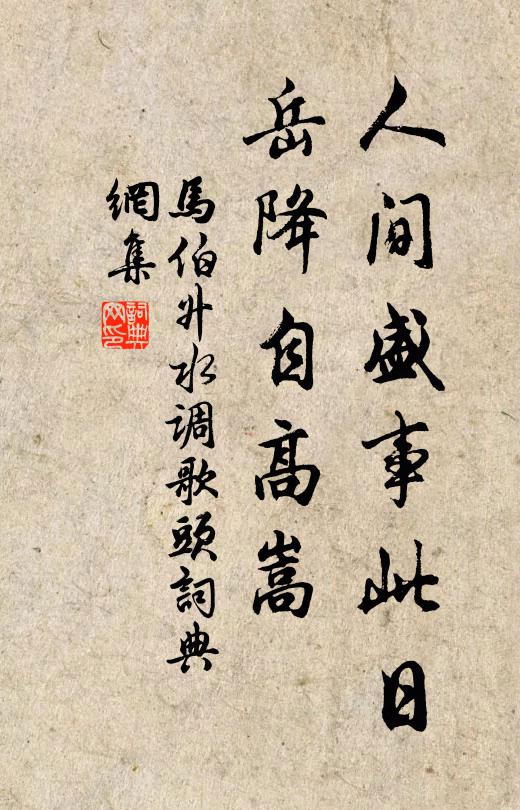 人間盛事此日
岳降自高嵩
馬伯升水調歌頭詞典
網集
詞典網印